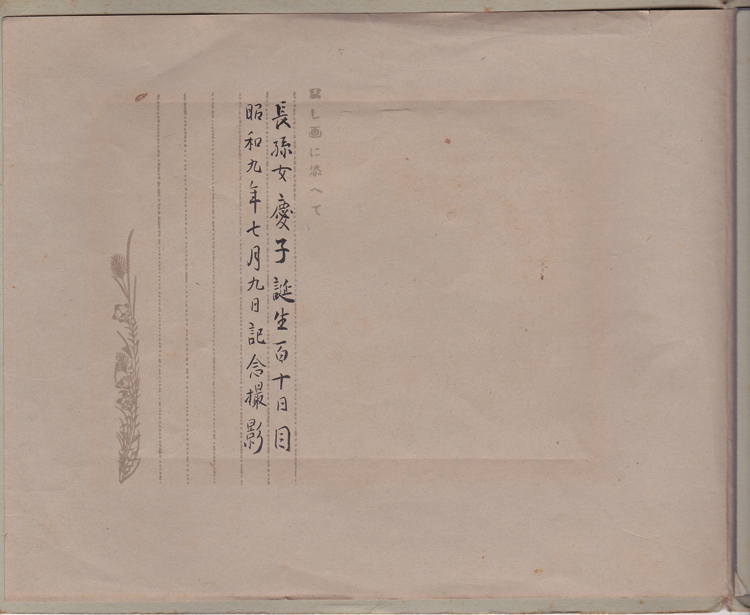 し画に添へて
長孫女慶子誕生百十日目
昭和九年七月九日記念撮影